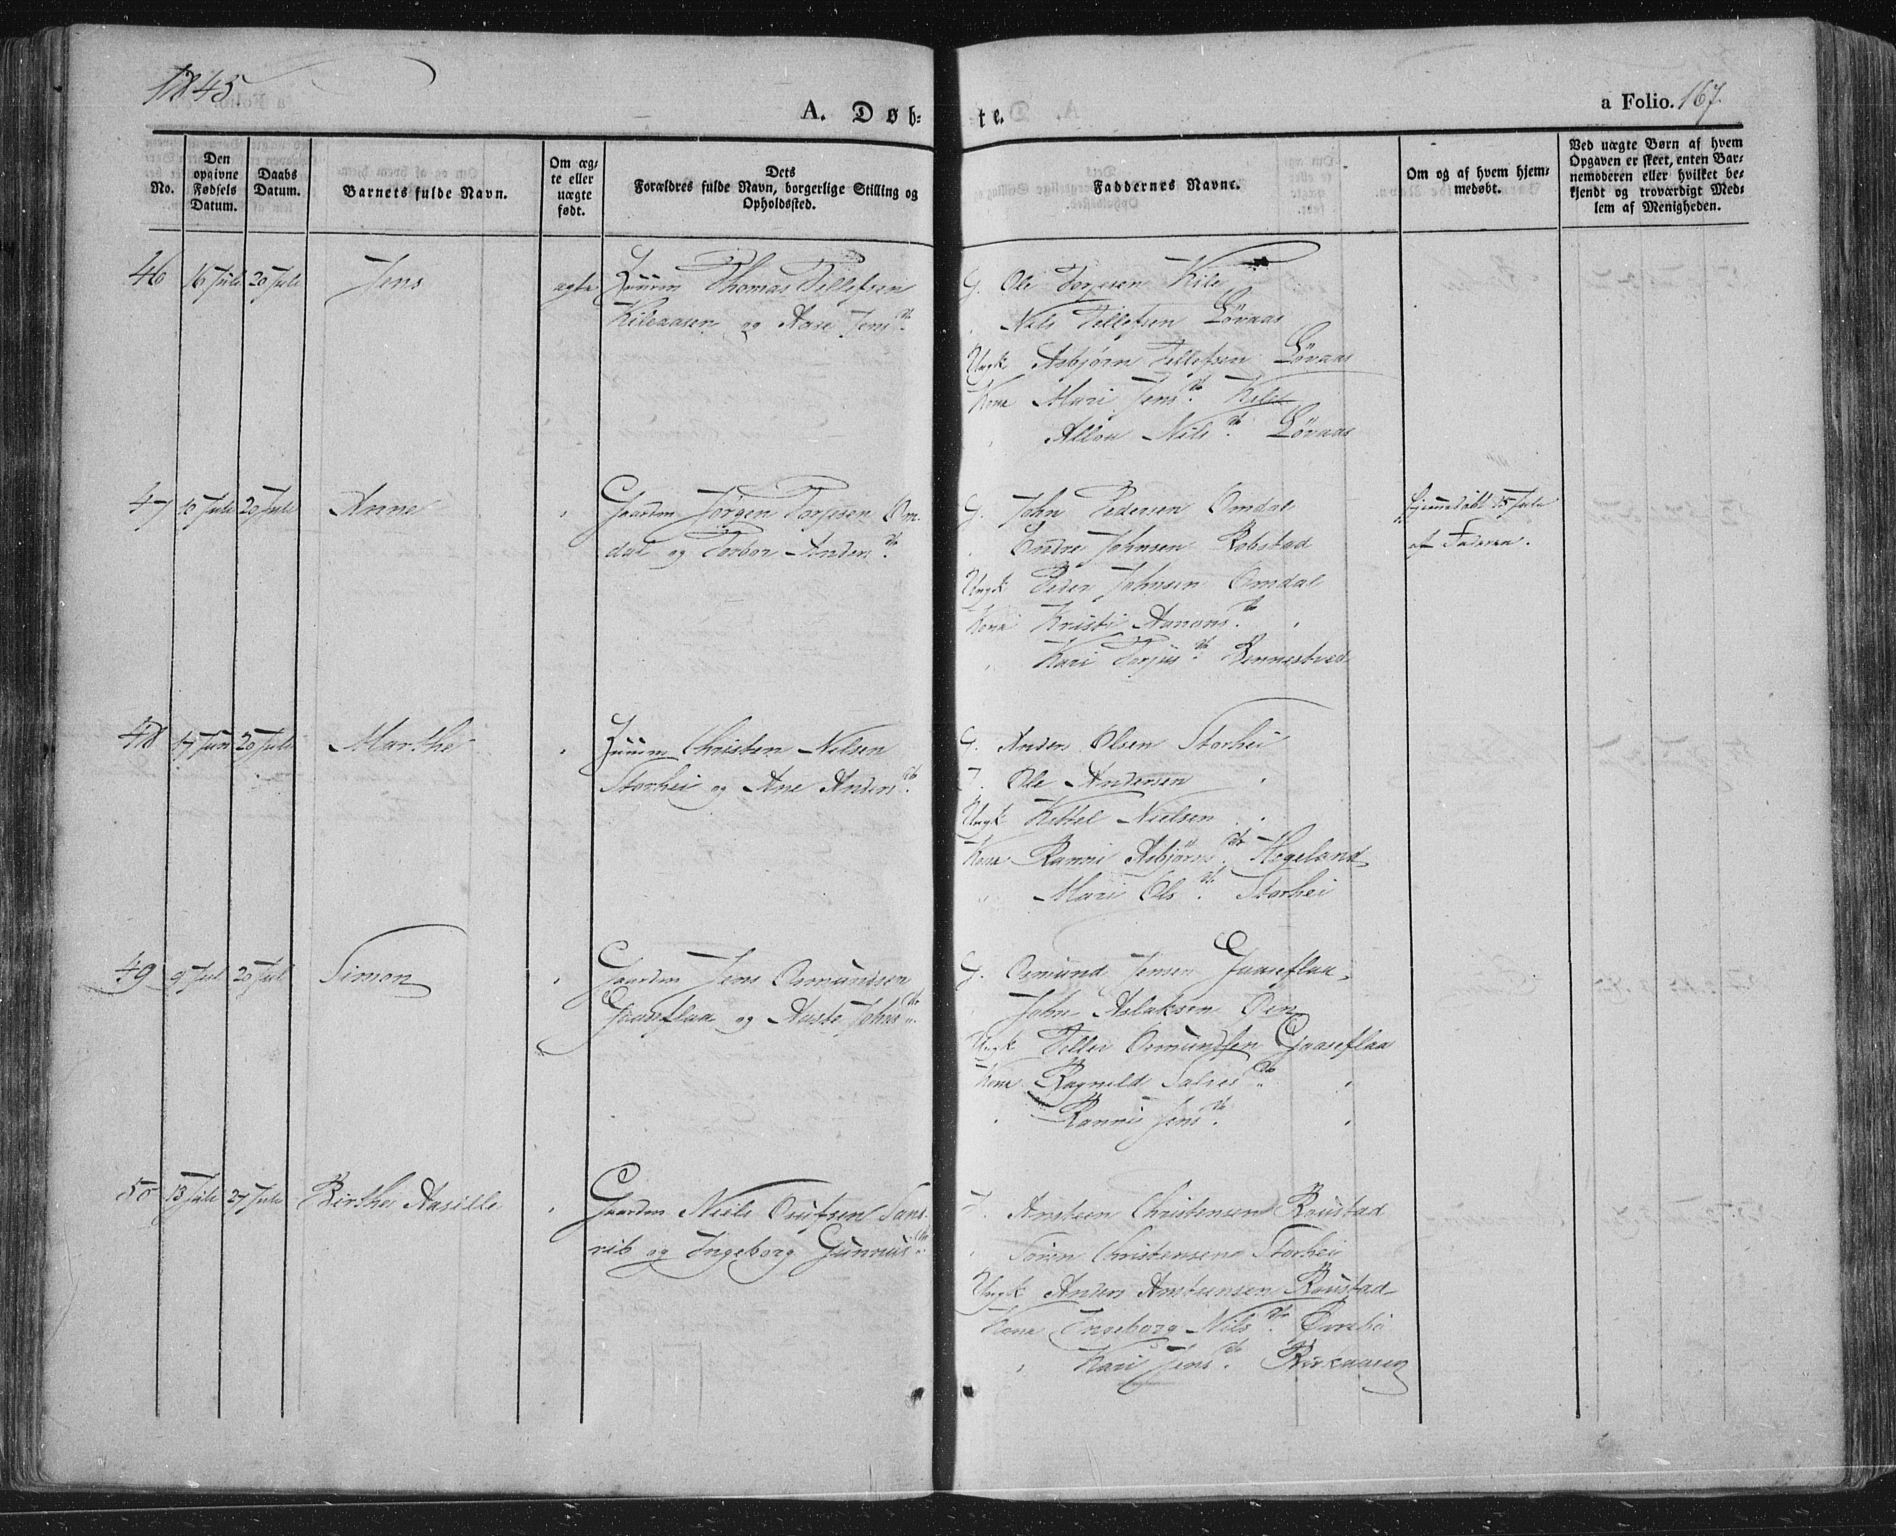 1845
A. Døb=te.
a Folio. 167.
No.
Den opgivne Fødsels Datum.
Daabs Datum.
Barnets fulde Navn.
Om æg-te eller uægte født.
Dets Forældres fulde Navn, borgerlige Stilling og Opholdssted.
Faddernes Navne.
Om og af hvem hjem-medøbt.
Ved uægte Børn af hvem Opgaven er skeet, enten Bar-nemoderen eller hvilket be-kjendt og troværdigt Med-lem af Menigheden.
46 16 Juli 20 Juli Jens ægte Thomas Tellefsen
Kileaasen og Aase Jens dr.
G. Ole Torjesen Kile
Nils Tellefsen Lövaas
Ungk Asbjørn Tellefsen Lövaas
Kone Mari Jens dr. Kile
" Nils dr. Lövaas
47 10 Juli 20 Juli Anne " Gaardm Jörgen Torjesen Om-
dal og Torbor Anders dr.
G. John Pedersen Omdal
" Endre Johnsen Robstad
Ungk Peder Johnsen Omdal
Kone Kristi Aanons dr. "
" Kari Torjus dr. Rennestved
hjemmedöbt 15 Juli
af Faderen.
48 17 Juni 20 Juli Marthe " Christen Nilsen
Storhei og Ane Anders dr.
G. Anders Olsen Storhei
F. Ole Andersen "
Ungk Kittel Nielsen "
Kone Ranni Asbjörns dr. Hogeland
" Mari Ols dr. Storhei
49 9 Jul 20 Jul Simon " Gaardm Jens Osmundsen
Gaaseflaa og Aaste Johns dr.
G. Osmund Jensen Gaaseflaa
" John Aslaksen Oen
Ungk Tellef Osmundsen Gaaseflaa
Kone Ragnild Salves dr. "
" Ranni Jens dr. "
50 13 Juli 27 Juli Birthe Aasille " Gaardm Niels Knutsen Tans-
rib og Ingeborg Gunnus dr.
F. Ansteen Christensen Roustad
" Christensen Storhei
Ungk Anders Anstensen Roustad
Kone Ingeborg Nils dr.
" Kari Jens dr. Birkaasen